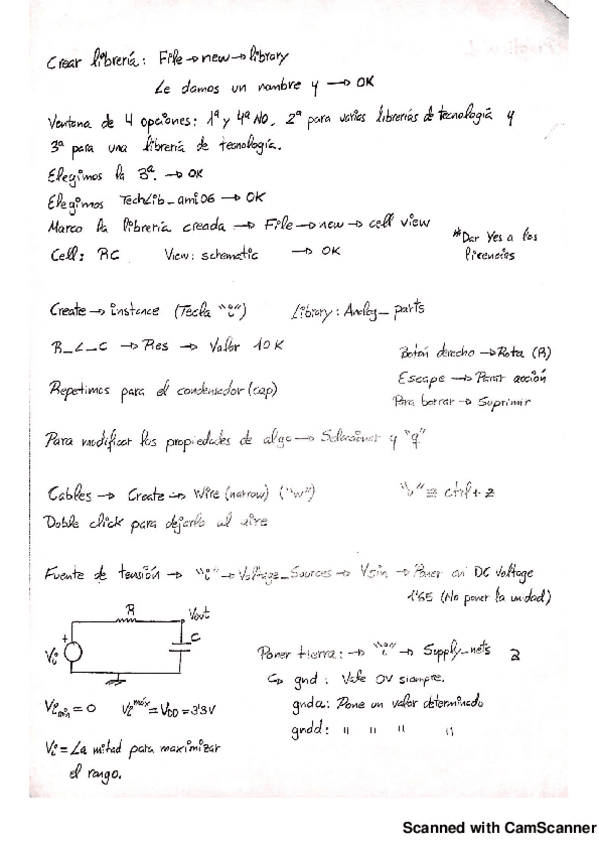 Crear librería: File → new → library
Le damos un nombre y → OK
Ventana de 4 opciones: 1ª y 4ª NO. 2ª para varias librerías de tecnología y
3ª para una librería de tecnología.
Elegimos la 3ª. → OK
Elegimos TechLib_ami06 → OK
Marco la librería creada → File → new → cell view
*Dar Yes a las
licencias
Cell: RC View: schematic → OK
Create → instance (Tecla "i") Library: Analog_parts
R_L_C → Res → Valor 10K
Botón derecho → Rota (R)
Escape → Parar acción
Para borrar → Suprimir
Repetimos para el condensador (cap)
Para modificar las propiedades de algo → Seleccionar y "q"
Cables → Create → Wire (narrow) ("w") "u" ≡ ctrl + z
Doble click para dejarlo al aire
Fuente de tensión → "i" → Voltage_Sources → Vsin → Poner en DC Voltage
1'65 (No poner la unidad)
R Vout
+ Vi C
Poner tierra: → "i" → Supply_nets
↳ gnd: Vale 0V siempre.
gnda: Pone un valor determinado
gndd: " " " "
Vi min = 0 Vi máx = VDD = 3'3V
Vi = La mitad para maximizar
el rango.
Scanned with CamScanner